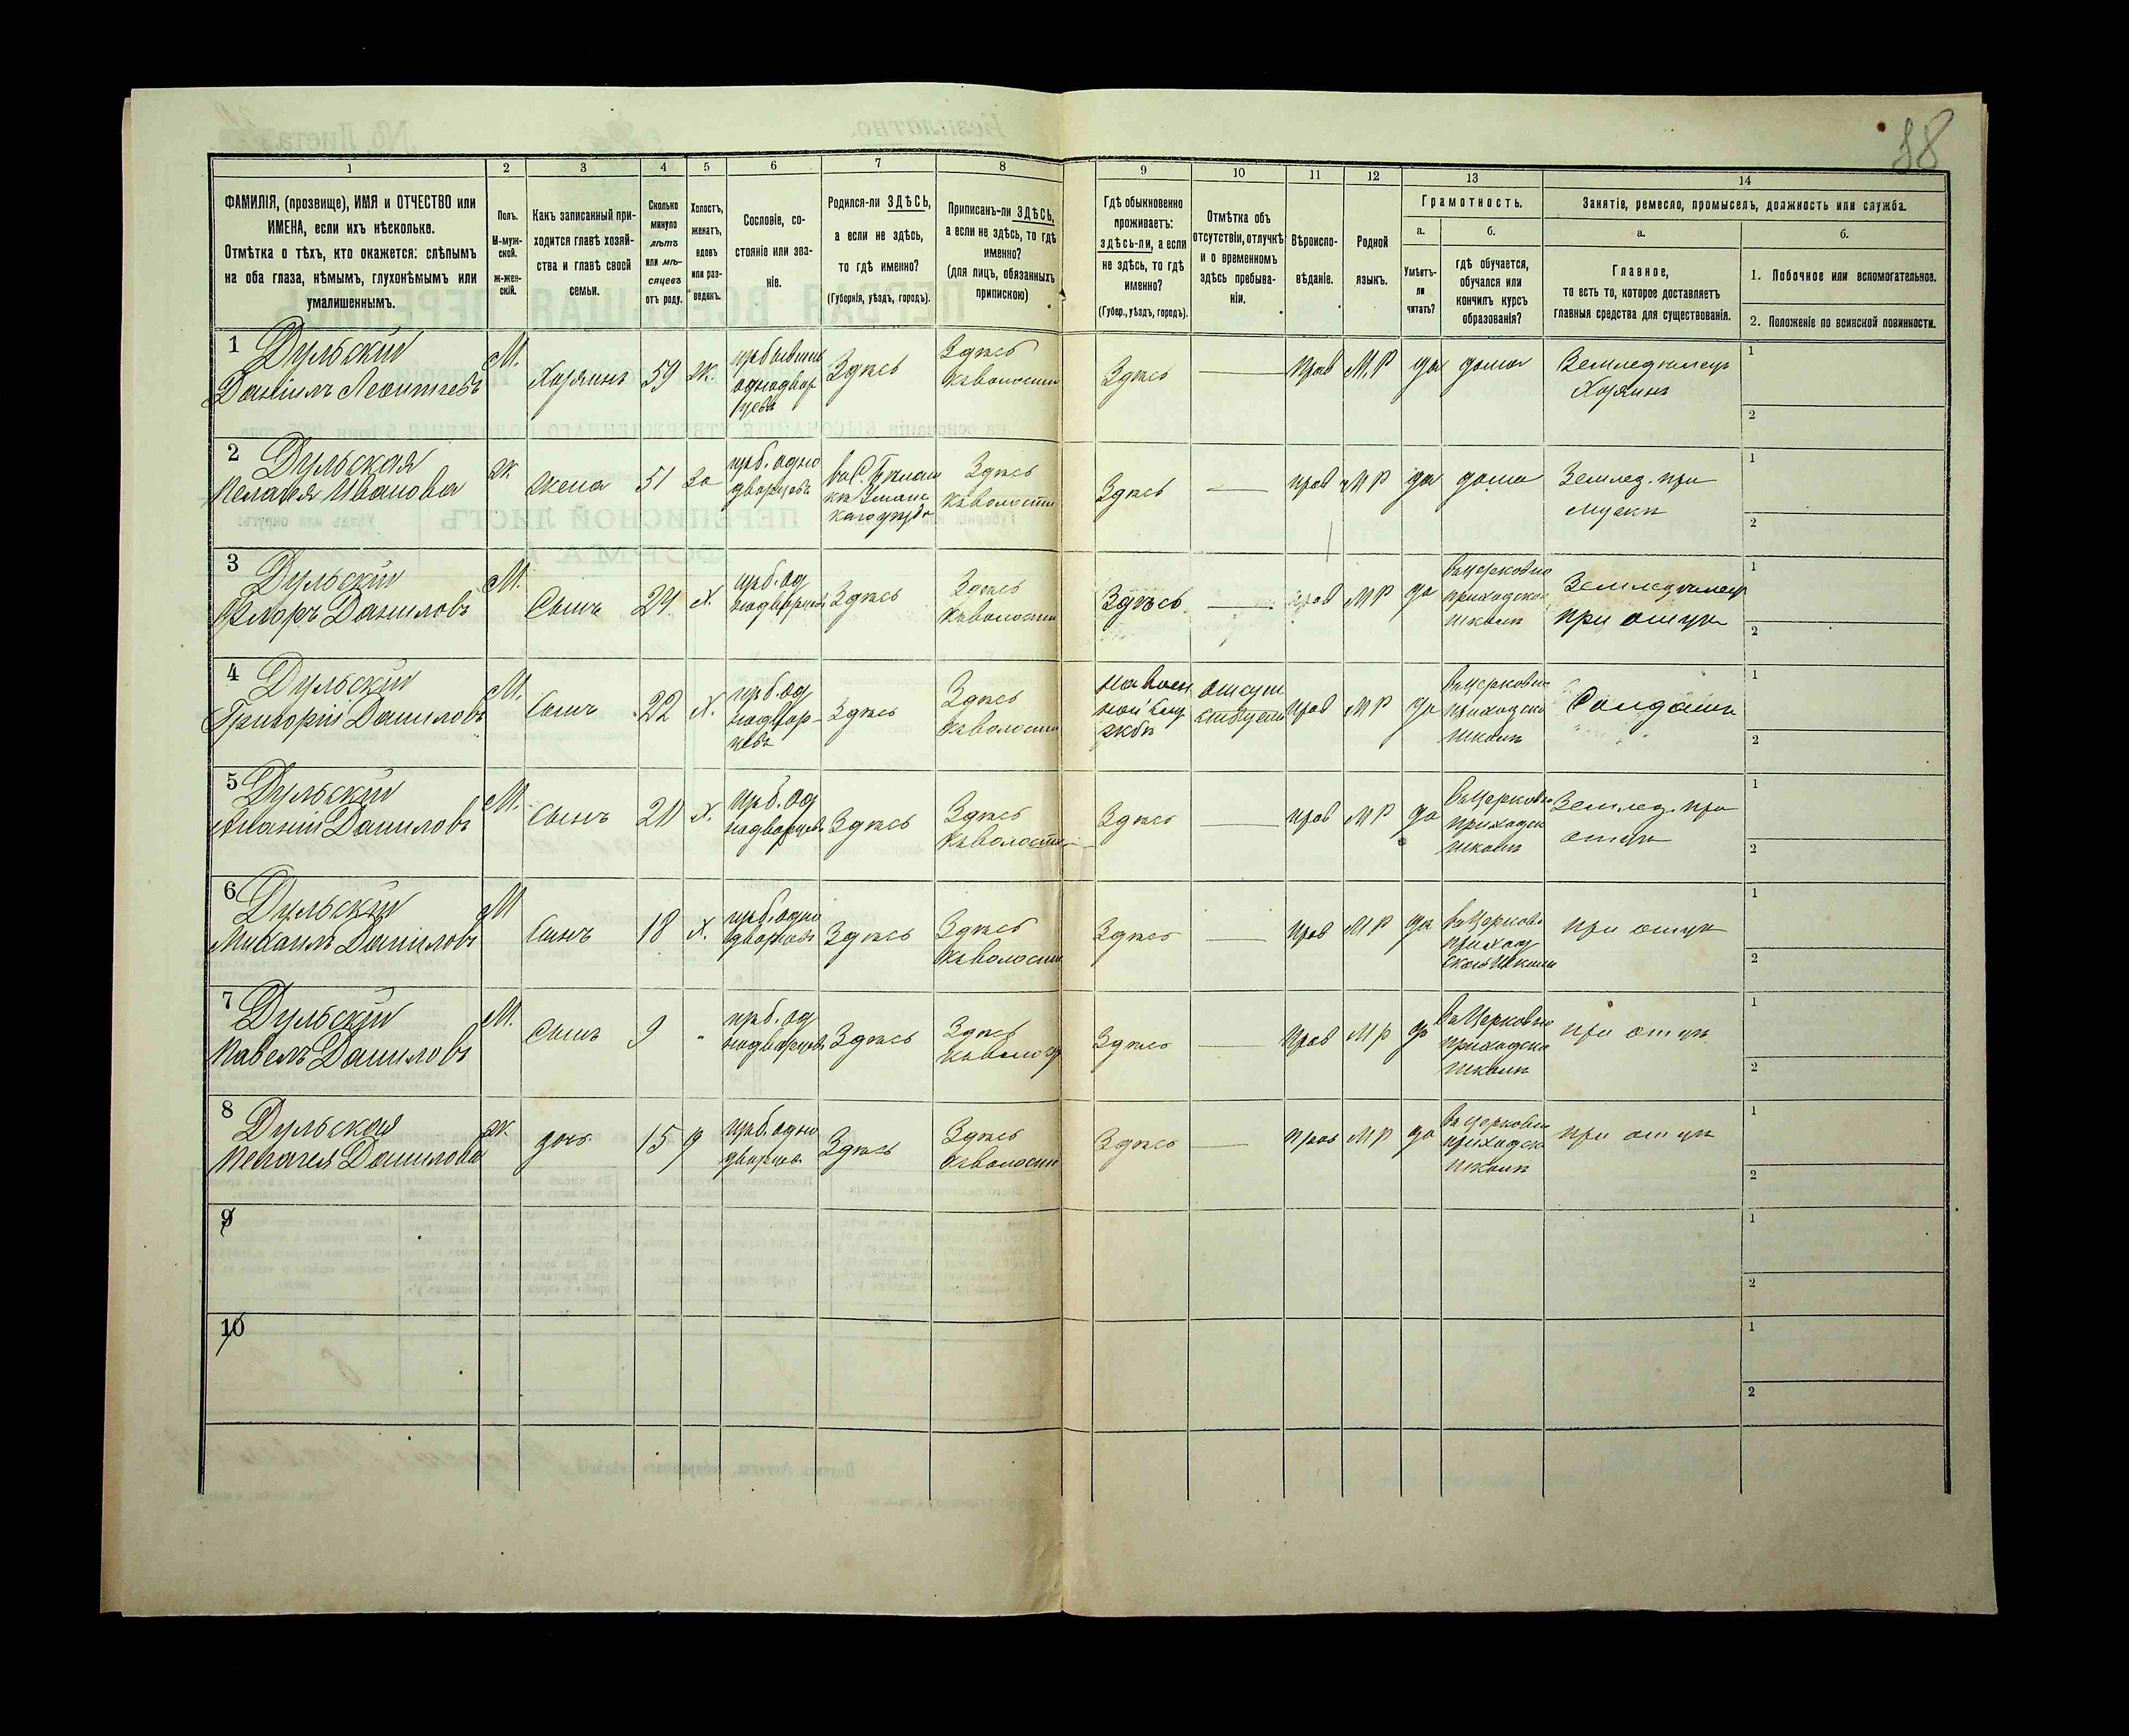 38
1 2 3 4 5 6 7 8 9 10 11 12 13 14
ФАМИЛІЯ, (прозвище), ИМЯ и ОТЧЕСТВО или
ИМЕНА, если ихъ нѣсколько.
Отмѣтка о тѣхъ, кто окажется: слѣпымъ
на оба глаза, нѣмымъ, глухонѣмымъ или
умалишеннымъ.
Полъ.
М-муж-
ской.
ж-жен-
скій.
Какъ записанный при-
ходится главѣ хозяй-
ства и главѣ своей
семьи.
Сколько
минуло
лѣтъ
или мѣ-
сяцевъ
отъ роду.
Холостъ,
женатъ,
вдовъ
или раз-
веденъ.
Сословіе, со-
стояніе или зва-
ніе.
Родился-ли ЗДѢСЬ,
а если не здѣсь,
то гдѣ именно?
(Губернія, уѣздъ, городъ).
Приписанъ-ли ЗДѢСЬ,
а если не здѣсь, то гдѣ
именно?
(для лицъ, обязанныхъ
припискою)
Гдѣ обыкновенно
проживаетъ:
здѣсь-ли, а если
не здѣсь, то гдѣ
именно?
(Губер., уѣздъ, городъ).
Отмѣтка объ
отсутствіи, отлучкѣ
и о временномъ
здѣсь пребыва-
ніи.
Вѣроиспо-
вѣданіе.
Родной
языкъ.
Грамотность.
а.
Умѣетъ-
ли
читать?
б.
гдѣ обучается,
обучался или
кончилъ курсъ
образованія?
Занятіе, ремесло, промыселъ, должность или служба.
а.
Главное,
то есть то, которое доставляетъ
главныя средства для существованія.
б.
1. Побочное или вспомогательное.
2. Положеніе по воинской повинности.
1 Дульскій
Даніилъ Леонтіевъ
М.
Хозяинъ
59
ж.
Здѣсь
Здѣсь
къ волости
Здѣсь
—
прав
М.Р
да
дома
Земледѣлецъ
Хозяинъ
1
2
2 Дульская
Пелагея Иванова
ж
жена
51
за
Здѣсь
къ волости
Здѣсь
—
прав
М Р
да
дома
Землед. при
мужѣ
1
2
3 Дульскій
Флоръ Даниловъ
М.
Сынъ
Х.
Здѣсь
Здѣсь
къ волости
Здѣсь
—
прав
М Р
да
въ Церковно
приходской
школѣ
Земледѣлецъ
при отцѣ
1
2
4 Дульскій
Григорій Даниловъ
М.
Сынъ
22
Х.
Здѣсь
Здѣсь
къ волости
на воен
ной слу
жбѣ
отсут
ствуетъ
прав
М Р
да
въ Церковно
приходско
школѣ
Солдатъ
1
2
5 Дульскій
Ананій Даниловъ
М.
Сынъ
Х.
Здѣсь
Здѣсь
къ волости
Здѣсь
—
прав
М Р
да
въ Церковно
приходск
школѣ
Землед. при
отцѣ
1
2
6 Дульскій
Михаилъ Даниловъ
М
Сынъ
18
Х.
Здѣсь
Здѣсь
къ волости
Здѣсь
—
прав
М Р
да
въ Церковно
приход
ской школѣ
при отцѣ
1
2
7 Дульскій
Павелъ Даниловъ
М.
Сынъ
9
"
Здѣсь
Здѣсь
Здѣсь
—
прав
М Р
да
въ Церковно
приходско
школѣ
при отцѣ
1
2
8 Дульская
Пелагея Данилова
ж.
дочь
15
Здѣсь
Здѣсь
къ волости
Здѣсь
—
прав
М Р
да
въ Церковно
приходск
школѣ
при отцѣ
1
2
9
1
2
10
1
2